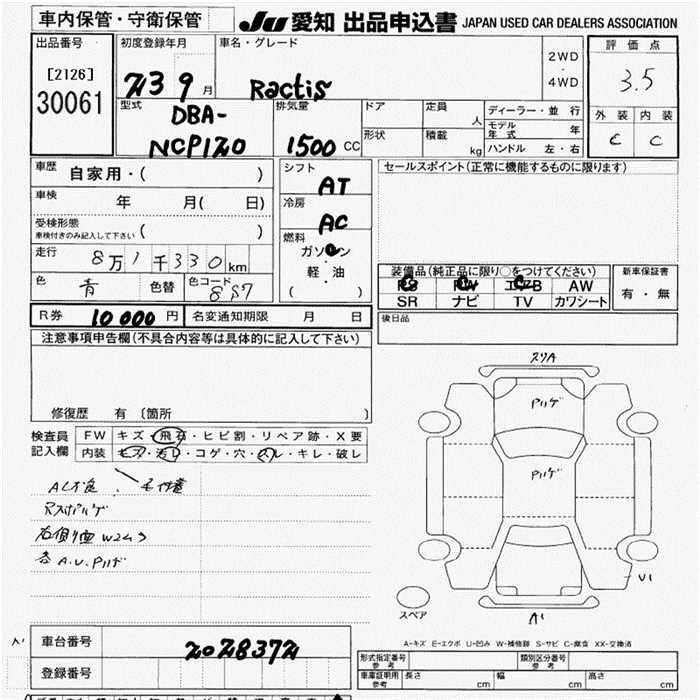 車内保管・守衛保管
JU 愛知 出品申込書 JAPAN USED CAR DEALERS ASSOCIATION
出品番号
[2126]
30061
初度登録年月
23 9 月
車名・グレード
Ractis
2WD
・
4WD
評価点
3.5
外装 内装
C C
型式
DBA-
NCP120
排気量
1500 CC
ドア
定員
人
形状
積載
kg
ディーラー・並行
モデル年式 年
ハンドル 左・右
車歴
自家用・( )
車検
年 月( 日)
受検形態
車検付きのみ記入して下さい ( )
走行
8万1千330km
色
青
色替
色コード
8S7
シフト
AT
冷房
AC
燃料
ガソリン
・
軽・油
( )
セールスポイント(正常に機能するものに限ります)
装備品(純正品に限り○をつけてください)
PS PW エアB AW
SR ナビ TV カワシート
新車保証書
有・無
R券 10000 円
名変通知期限 月 日
後日品
注意事項申告欄(不具合内容等は具体的に記入して下さい)
修復歴 有 〔箇所 〕
検査員
記入欄
FW キズ・飛石・ヒビ割・リペア跡・X要
内装 キズ・汚レ・コゲ・穴・スレ・キレ・破レ
右側面W2ｺﾅｼ
各A.U.Pﾘｹﾞ
スリA
Pﾊｹﾞ
Pﾊｹﾞ
U1
A1
スペア
A-キズ E-エクボ U-凹み W-補修跡 S-サビ C-腐食 XX-交換済
A1
車台番号
2028372
登録番号
形式指定番号
参考
類別区分番号
参考
車庫証明用
参考
長さ cm
幅 cm
高さ cm